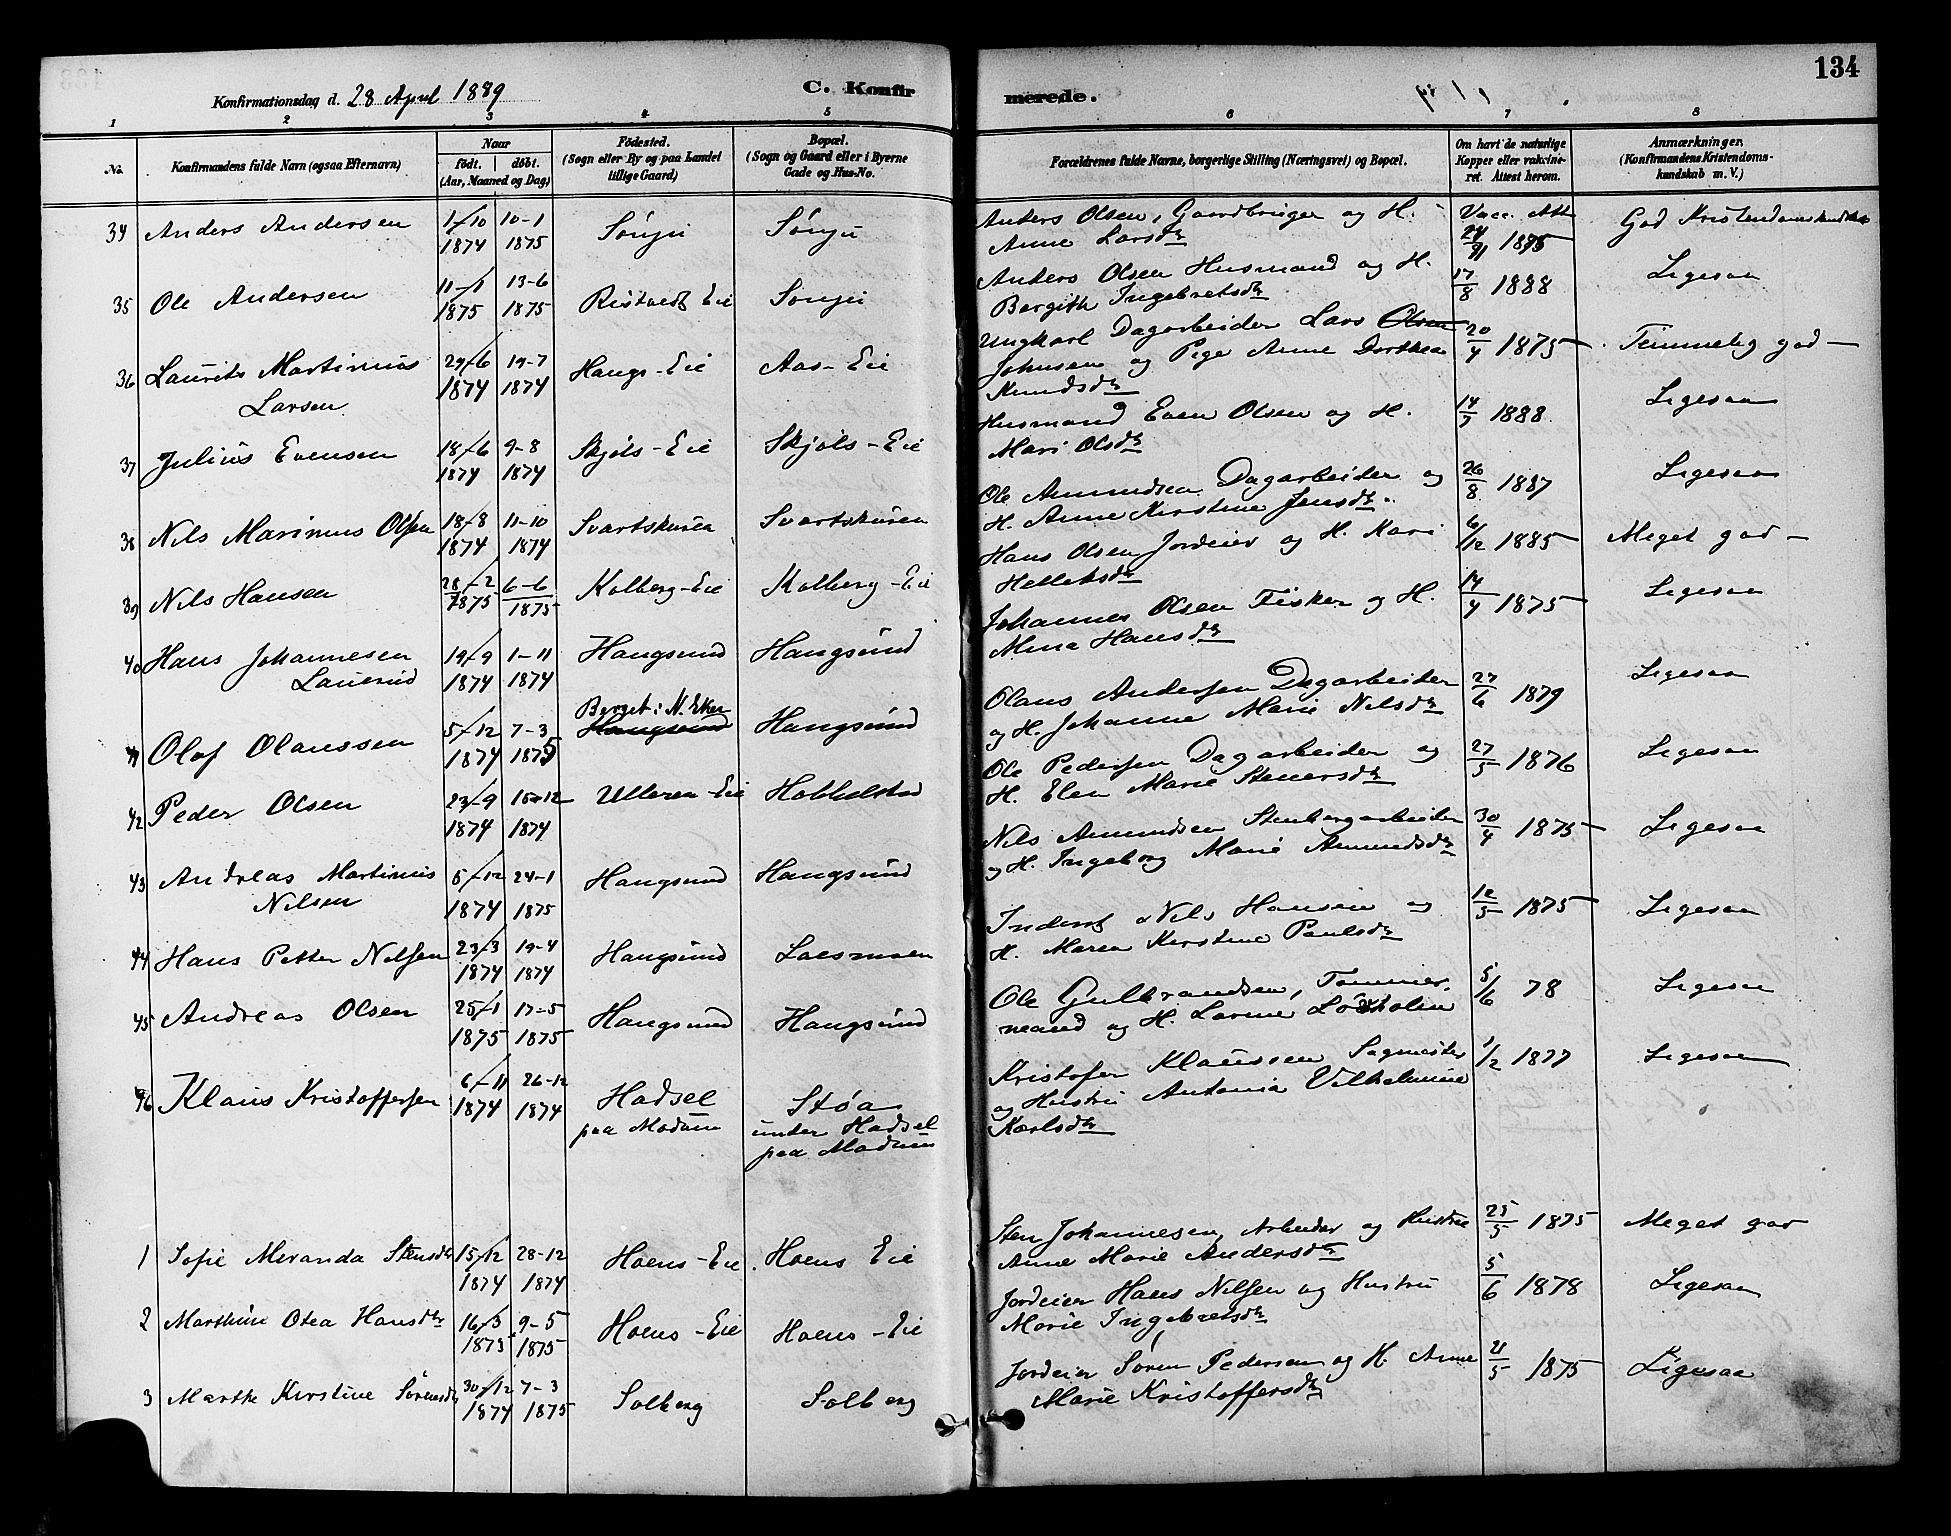 134
Konfirmationsdag d. 28 April 1889
C. Konfirmerede.
1 2 3 4 5 6 7 8
No.
Konfirmandens fulde Navn (ogsaa Efternavn)
Naar
født. døbt.
(Aar, Maaned og Dag)
Fødested.
(Sogn eller By og paa Landet
tillige Gaard)
Bopæl.
(Sogn og Gaard eller i Byerne
Gade og Hus-No.
Forældrenes fulde Navne, borgerlige Stilling (Næringsvei) og Bopæl.
Om havt de naturlige
Kopper eller vakcineret. Attest herom.
Anmærkninger.
(Konfirmandens Kristendomskundskab m. V.)
34 Anders Andersen 1/10 1874 10-1 1875 Sønju Sønju
Anders Olsen, Gaardbruger og H.
Anne Larsdtr
Vacc. Att 1875
God Kristendomskundskab
35 Ole Andersen 1875 13-6 1875 Eie Sønju
Anders Olsen Husmand og H.
Bergith Ingebretsdtr
17/8 1888
Ligesaa
36 Laurits Martinius
Larsen
29-6 1874 19-7 1874 Haugs-Eie Aas-Eie
Ungkarl Dagarbeider Lars Olsen
Johnsen og Pige Anne Dorthea
Knudsdtr
20/4 1875
Temmelig god
37 Julius Evensen 18-6 1874 9-8 1874 Skjøls-Eie Skjøls-Eie
Husmand Even Olsen og H.
Mari Olsdtr
1888
Ligesaa
38 Nils Marinus Olsen 18-8 1874 11-10 1874 Svartskuren Svartskuren
Ole Amundsen Dagarbeider og
H. Anne Kirstine Jensdtr.
26/8 1887
Ligesaa
39 Nils Hansen 28-2 1875 6-6 1875 Kolberg-Eie Kolberg-Eie
Hans Olsen Jordeier og H. Kari
Helleksdtr
6/12 1885
Meget god
40 Hans Johannesen
Lauerud
19-9 1874 1-11 1874 Haugsund Haugsund
Johannes Olsen Fisker og H.
Mina Hansdtr
14/4 1875
Ligesaa
41 Olaf Olaussen 5-12 1874 7-3 1875 Berget i N. Eker Haugsund Haugsund
Olaus Andersen Dagarbeider
og H. Johanne Marie Nilsdtr
27/6 1879
Ligesaa
42 Peder Olsen 23-9 1874 1874 Ulleren-Eie Hobbelstad
Ole Pedersen Dagarbeider og
H. Elen Marie Steversdtr
27/5 1876
Ligesaa
43 Andreas Martinius
Nilsen
5-12 1874 24-1 1875 Haugsund Haugsund
Nils Amundsen Stenbergarbeider
og H. Ingeborg Marie Amundsdtr
30/4 1875
Ligesaa
44 Hans Petter Nilsen 23-3 1874 19-4 1874 Haugsund Loesmoen
Inderst Nils Hansen og
H. Maren Kirstine Paulsdtr
12/5 1875
Ligesaa
45 Andreas Olsen 25-1 1875 17-5 1875 Haugsund Haugsund
Ole Gulbrandsen, Tømmermand og H. Lovise
5/6 78
Ligesaa
46 Klaus Kristoffersen 6-11 1874 26-12 1874
Hadsel
paa Modum
Støa
under Hadsel
paa Modum
Kristofer Klaussen Sagmester
og Hustru Antonia Vilhelmine
Karlsdtr
1/2 1877
Ligesaa
1 Sofie Miranda Stensdtr 15-12 1874 28-12 1874 Hoens-Eie Hoens Eie
Sten Johannesen, Arbeider og Hustru
Anne Marie Andersdtr
25/5 1875
Meget god
2 Marthine Otea Hansdtr 16-3 1875 9-5 1875 Hoens-Eie Hoens-Eie
Jordeier Hans Nilsen og Hustru
Marie Ingebretsdtr
5/6 1878
Ligesaa
3 Marthe Kirstine Sørensdtr 30-12 1874 7-3 1875 Solberg Solberg
Jordeier Søren Pedersen og H. Anne
Marie Kristoffersdtr
21/5 1875
Ligesaa